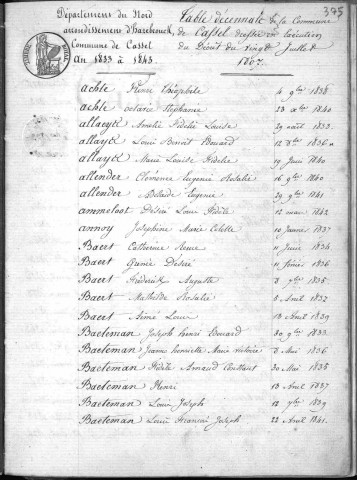 375
Département du Nord
arrondissement d'Hazebrouck,
Commune de Cassel
An 1833 à 1843.
Table décennale de la Commune
de Cassel dressée en exécution
du Décret du vingt Juillet
1807.
achte Pierre Théophile 4 9bre 1838
achte octavie Stéphanie 23 1840
allaeyt Amélie Fidélie Louise 29 août 1833.
allaeyt Louis Benoit Edouard 12 1836
allaeyt Marie Louise Fidélie 19 Juin 1840
allender Clémence Eugénie Rosalie 16 9bre 1840
allender Eugénie 29 9bre 1841
ammeloot Désiré Louis Fidèle 12 mars 1842
annoy Joséphine Marie Colette 10 Janvier 1837
Baert Catherine 11 Juin 1834
Baert Désiré 11 février 1836
Baert Fréderick Auguste 3 7bre 1835
Baert Mathilde Rosalie 5 Avril 1837
Baert Aimé Louis 13 Avril 1839
Baeteman Joseph henri Edouard 30 9bre 1833
Baeteman Jeanne henriette Marie Victoire 6 Mai 1836
Baeteman Fidèle Amand Constant 30 Mai 1835
Baeteman Henri 13 Avril 1837
Baeteman Louis Joseph 12 7bre 1839
Baeteman Louis François Joseph 22 Avril 1841.